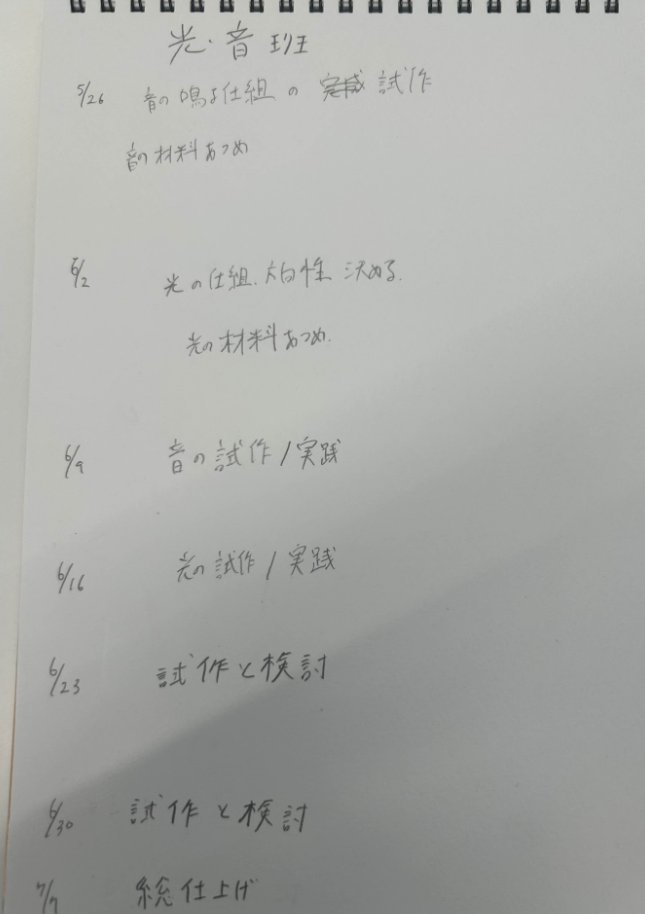 光・音班
5/26 音の鳴る仕組の 試作
音の材料あつめ
6/2 光の仕組、方向性 決める.
光の材料あつめ.
6/9 音の試作/実践
6/16 光の試作/実践
6/23 試作と検討
6/30 試作と検討
7/7 総仕上げ